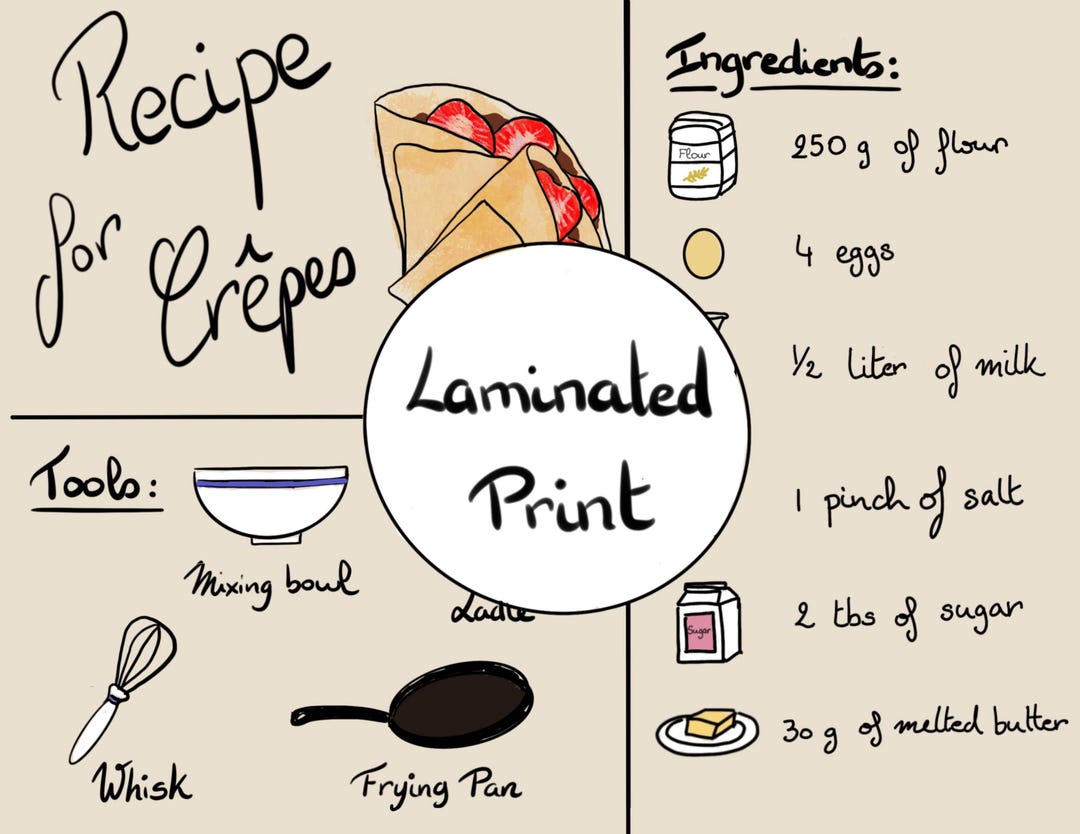 Recipe
for
Crêpes
Ingredients:
Flour
250 g of flour
4 eggs
1/2 liter of milk
1 pinch of salt
Sugar
2 tbs of sugar
30 g of melted butter
Laminated
Print
Tools:
Mixing bowl
Ladle
Whisk
Frying Pan